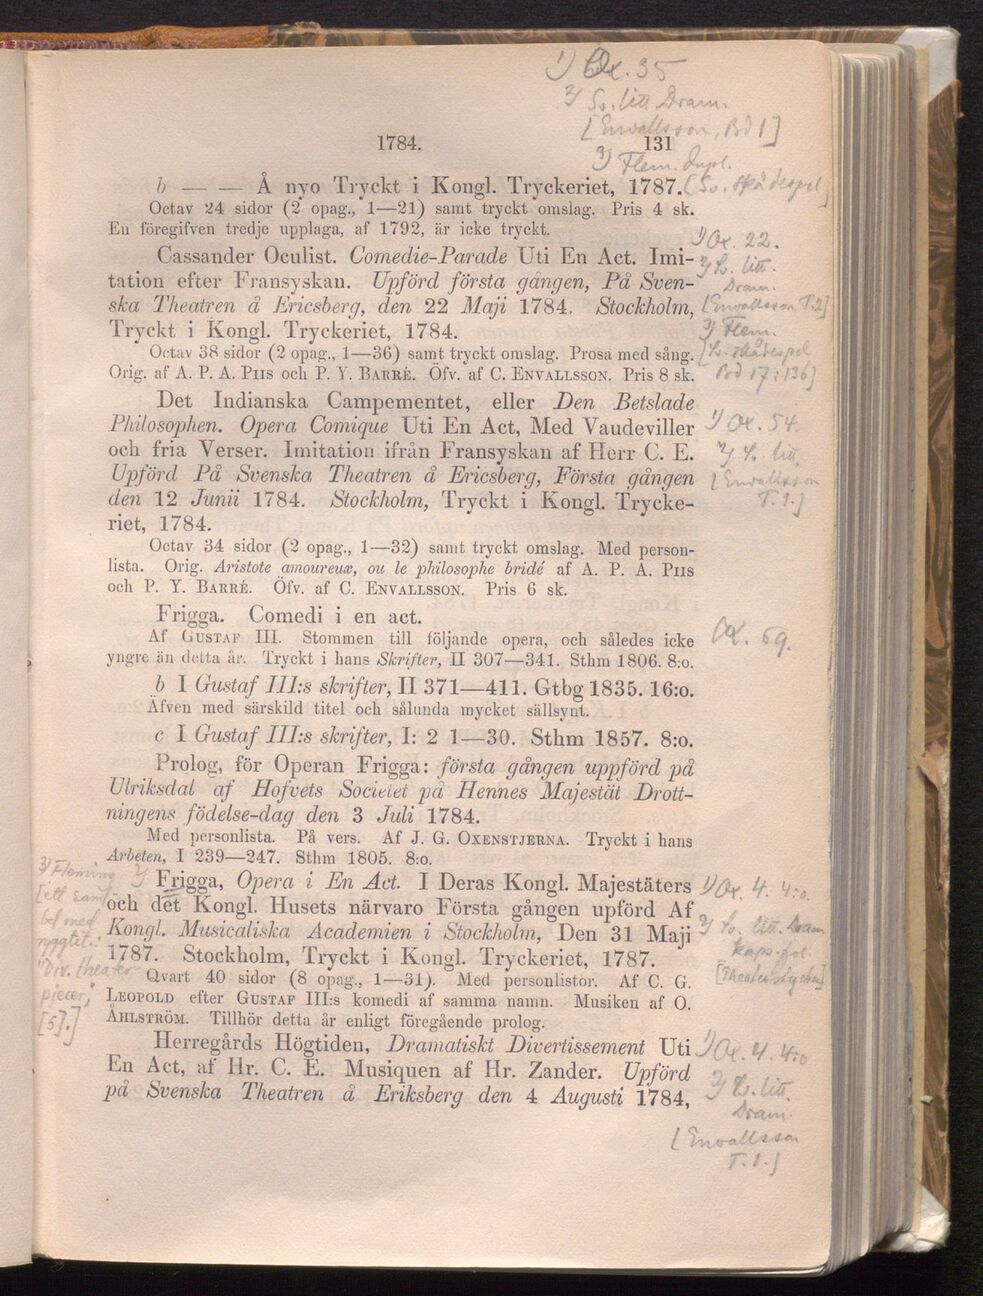 1) Ox. 35
2) Sv. litt Dram.
[Envallsson, Bd 1]
1784. 131
3) Flem. Dupl.
b — — Å nyo Tryckt i Kongl. Tryckeriet, 1787. [Sv. skådespel
Octav 24 sidor (2 opag., 1—21) samt tryckt omslag. Pris 4 sk.
En föregifven tredje upplaga, af 1792, är icke tryckt.
1) Ox. 22.
Cassander Oculist. Comedie-Parade Uti En Act. Imi-
2) Sv. litt.
tation efter Fransyskan. Upförd första gången, På Sven-
Dram.
ska Theatren å Ericsberg, den 22 Maji 1784. Stockholm,
[Envallsson T.2]
Tryckt i Kongl. Tryckeriet, 1784.
3) Flem.
Octav 38 sidor (2 opag., 1—36) samt tryckt omslag. Prosa med sång.
[Sv. skådespel
Orig. af A. P. A. Piis och P. Y. Barré. Öfv. af C. Envallsson. Pris 8 sk.
Bd 17:136]
Det Indianska Campementet, eller Den Betslade
Philosophen. Opera Comique Uti En Act, Med Vaudeviller
1) Ox. 54.
och fria Verser. Imitation ifrån Fransyskan af Herr C. E.
2) Sv. litt.
Upförd På Svenska Theatren å Ericsberg, Första gången
[Envallsson
den 12 Junii 1784. Stockholm, Tryckt i Kongl. Trycke-
T.1.]
riet, 1784.
Octav 34 sidor (2 opag., 1—32) samt tryckt omslag. Med person-
lista. Orig. Aristote amoureux, ou le philosophe bridé af A. P. A. Piis
och P. Y. Barré. Öfv. af C. Envallsson. Pris 6 sk.
Frigga. Comedi i en act.
Af Gustaf III. Stommen till följande opera, och således icke
Ox. 69.
yngre än detta år. Tryckt i hans Skrifter, II 307—341. Sthm 1806. 8:o.
b I Gustaf III:s skrifter, II 371—411. Gtbg 1835. 16:o.
Äfven med särskild titel och sålunda mycket sällsynt.
c I Gustaf III:s skrifter, I: 2 1—30. Sthm 1857. 8:o.
Prolog, för Operan Frigga: första gången uppförd på
Ulriksdal af Hofvets Societet på Hennes Majestät Drott-
ningens födelse-dag den 3 Juli 1784.
Med personlista. På vers. Af J. G. Oxenstjerna. Tryckt i hans
Arbeten, I 239—247. Sthm 1805. 8:o.
3) Fleming
Frigga, Opera i En Act. I Deras Kongl. Majestäters
1) Ox. 4. 4:o.
[ett
och det Kongl. Husets närvaro Första gången upförd Af
2) Sv. litt. Dram
med
Kongl. Musicaliska Academien i Stockholm, Den 31 Maji
kaps. fol.
ryggtit.:
1787. Stockholm, Tryckt i Kongl. Tryckeriet, 1787.
[Theaterstycken]
"Div. theater
Qvart 40 sidor (8 opag., 1—31). Med personlistor. Af C. G.
pjecer,"
Leopold efter Gustaf III:s komedi af samma namn. Musiken af O.
[5].]
Åhlström. Tillhör detta år enligt föregående prolog.
Herregårds Högtiden, Dramatiskt Divertissement Uti
1) Ox. 4. 4:o
En Act, af Hr. C. E. Musiquen af Hr. Zander. Upförd
2) Sv. litt.
på Svenska Theatren å Eriksberg den 4 Augusti 1784,
Dram.
[Envallsson
T.1.]